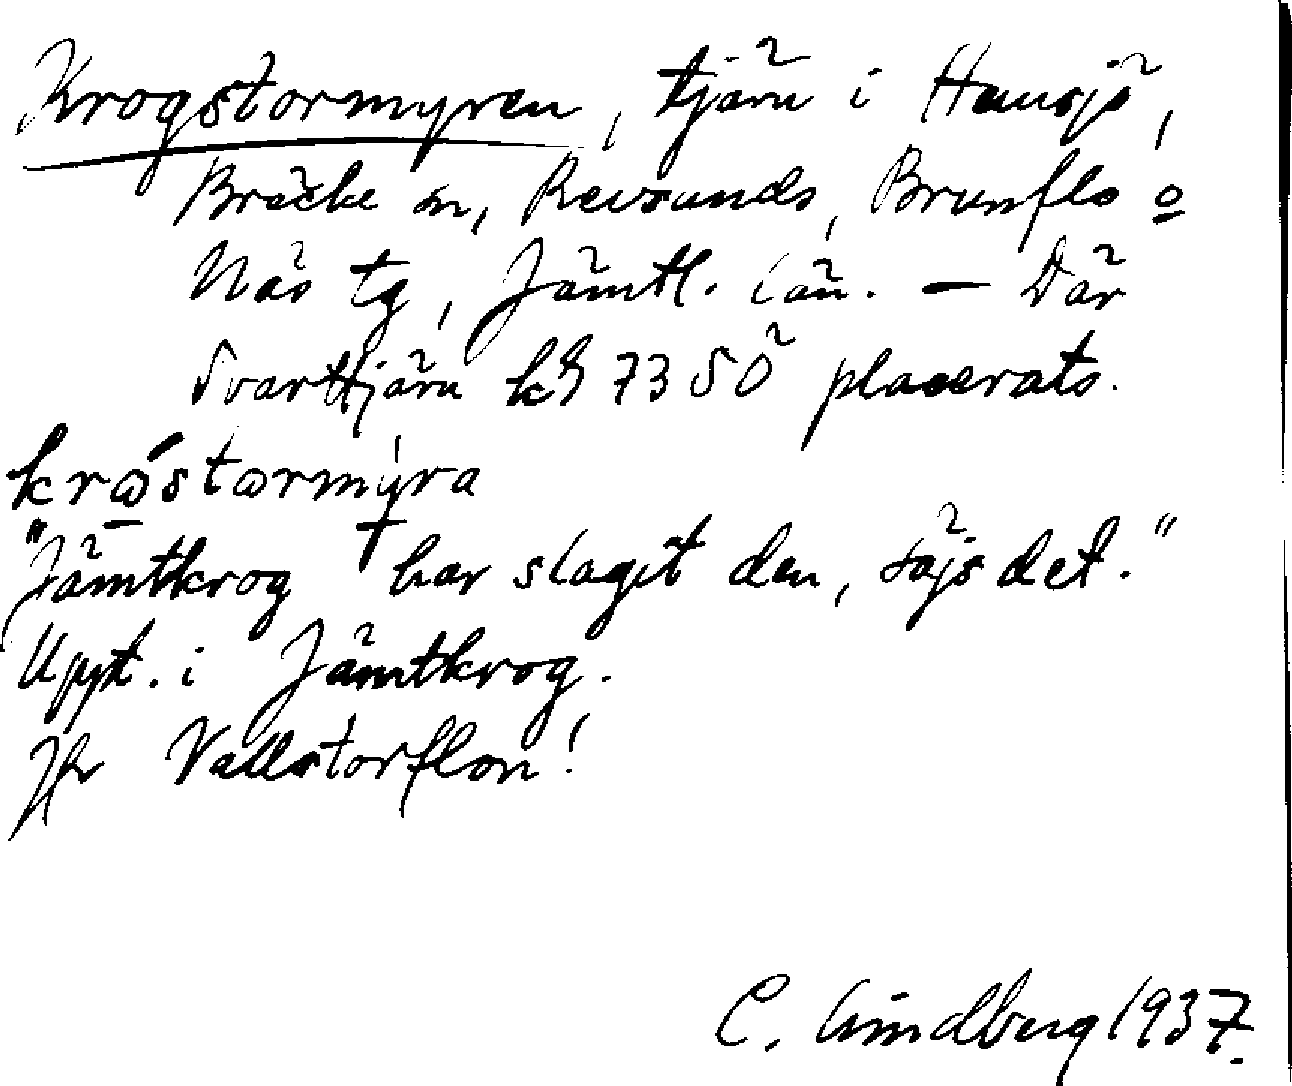 Krogstormyren, tjärn i Hansjö,
Bräcke sn, Revsunds, Brunflo o
Näs tg, Jämtl. län. — Där
Svarttjärn kbl 73 SÖ placerats.
krɷ́stɷrmýra
"Jämtkrog har slagit den, säjs det."
Uppt. i Jämtkrog.
Jfr Vallstorflon!
C. Lindberg 1937.